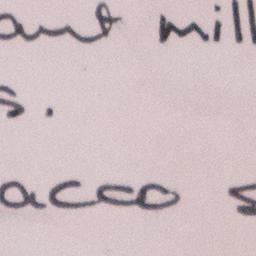 ant mill
s.
acco s